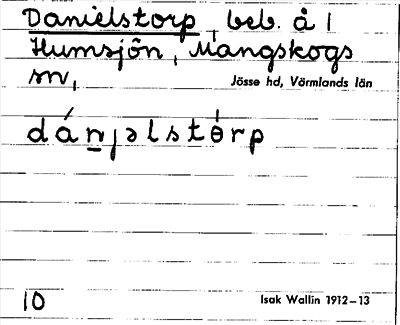 Danielstorp, beb. å 1
Humsjön, Mangskogs
sn,
Jösse hd, Värmlands län
dánjəlstɵ́rp
10
Isak Wallin 1912–13